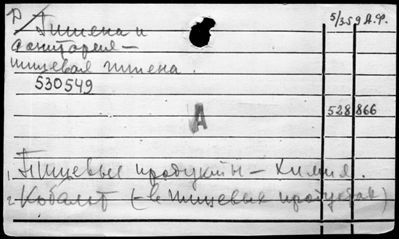 Гигиена и 5/359 А.Ф.
санитария -
пищевая гигиена.
530549
А 528866
1. Пищевые продукты - химия.
2. Кобальт (- в пищевых продуктах)